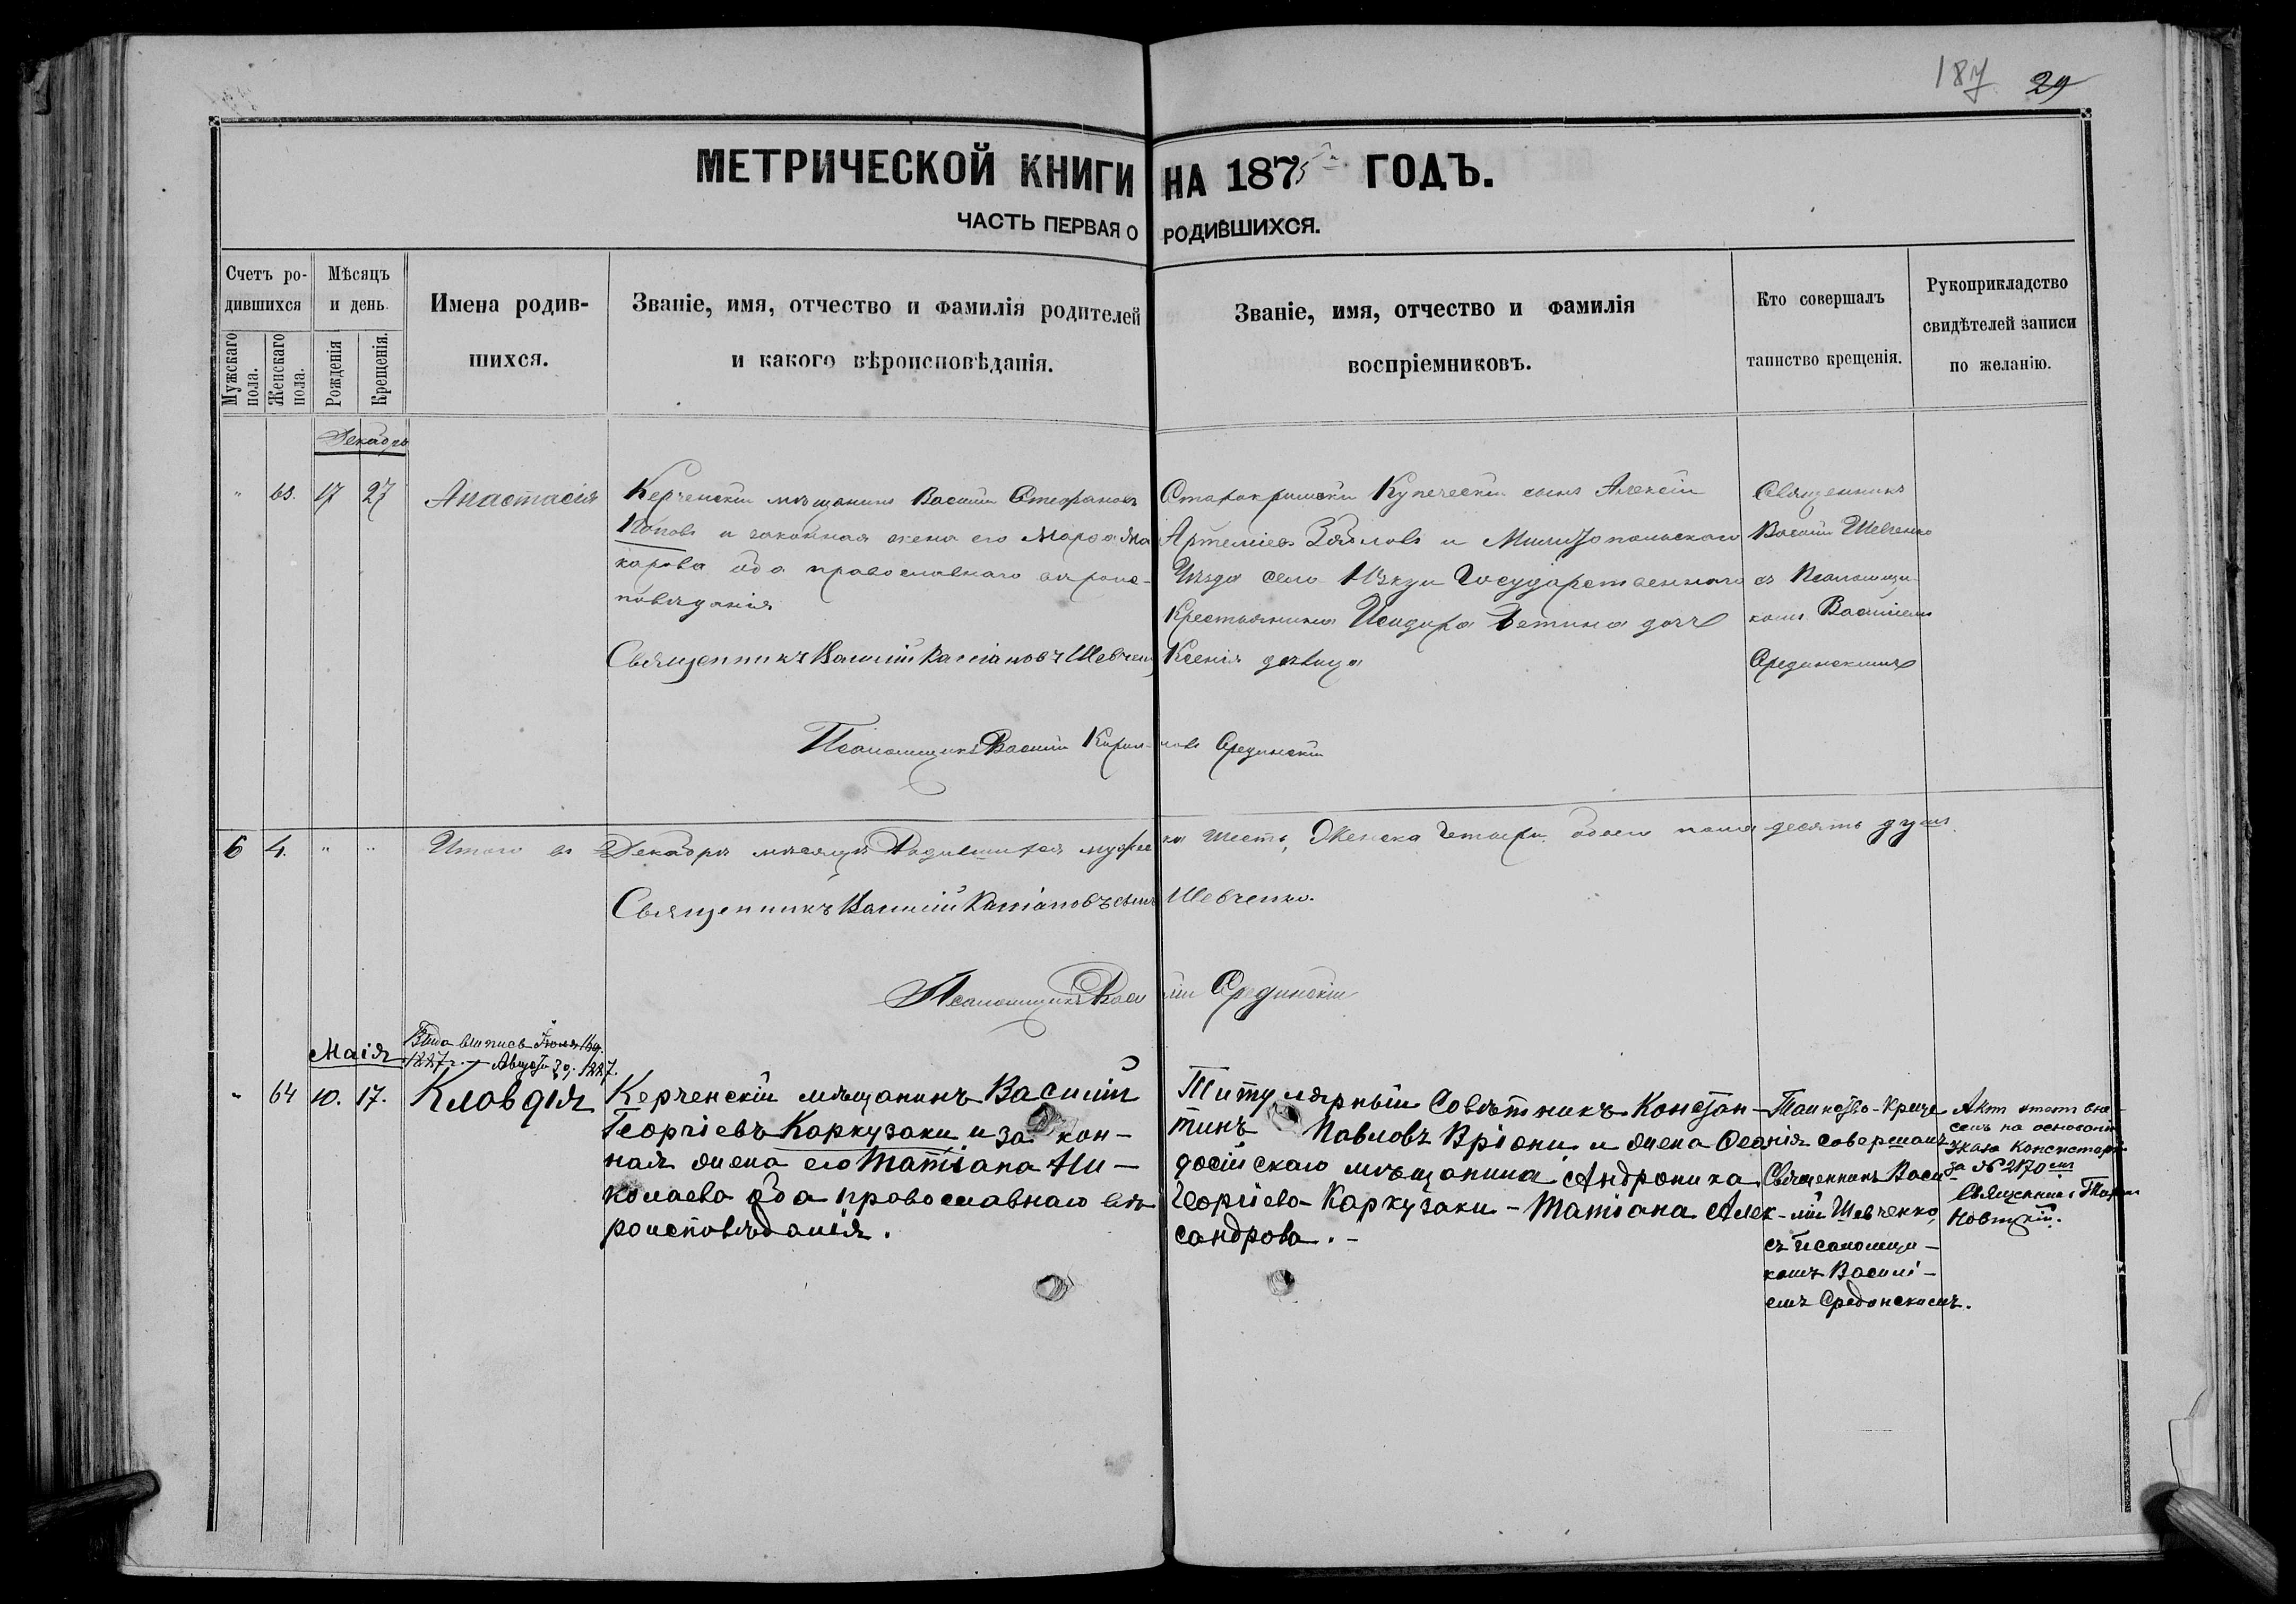 187 29
МЕТРИЧЕСКОЙ КНИГИ НА 1875 ГОДЪ.
ЧАСТЬ ПЕРВАЯ О РОДИВШИХСЯ.
Счетъ родившихся
Мѣсяцъ и день.
Имена родившихся.
Званіе, имя, отчество и фамилія родителей
и какого вѣроисповѣданія.
Званіе, имя, отчество и фамилія
воспріемниковъ.
Кто совершалъ
таинство крещенія.
Рукоприкладство
свидѣтелей записи
по желанію.
Мужскаго пола.
Женскаго пола.
Рожденія
Крещенія.
Декабрь
" 63. 17 27 Анастасія
Керченскій мѣщанинъ Василій Стефановъ
Поповъ и законная жена его Марѳа Ма
карова оба православнаго вѣроис-
повѣданія
Священникъ Василій Кассіановъ Шевчен
Старокрымскій Купеческій сынъ Алексій
Артеміевъ и Мелитопольскаго
Уѣзда село Государственного
Крестьянина Исидора дочь
Ксенія дѣвица
Священникъ
Василій Шевченко
съ Псаломщи-
комъ Василіемъ
Срединскимъ
Псаломщикъ Василій Кирил-ловъ Срединскій
6 4. " " Итого въ Декабрѣ мѣсяцѣ Родившихся мужес ка шесть, Женска четыри обоего пола десять душъ.
Священникъ Василій Кассіановъ сынъ Шевченко.
Псаломщикъ Васи лій Срединскій
Маія
Выда выпись Іюля
1887 г. Августа 29. 1887.
" 64 10. 17. Клавдія
Керченскій мѣщанинъ Василій
Георгіевъ Каркузаки и закон-
ная жена его Татіана Ни-
колаева оба православнаго вѣ
роисповѣданія.
Титулярный Совѣтникъ Констан-
тинъ Павловъ Вріони и жена Ѳео-
досійскаго мѣщанина Андроника
Георгіева Каркузаки - Татіана Алек-
сандрова. -
Таинство-Креще
нія совершалъ
Священникъ Васи-
лій Шевченко
съ Псаломщи-
комъ Василі-
емъ Срединскимъ.
Актъ этотъ вне-
сенъ на основаніи
указа Консисторіи
за № 2170
Священникъ